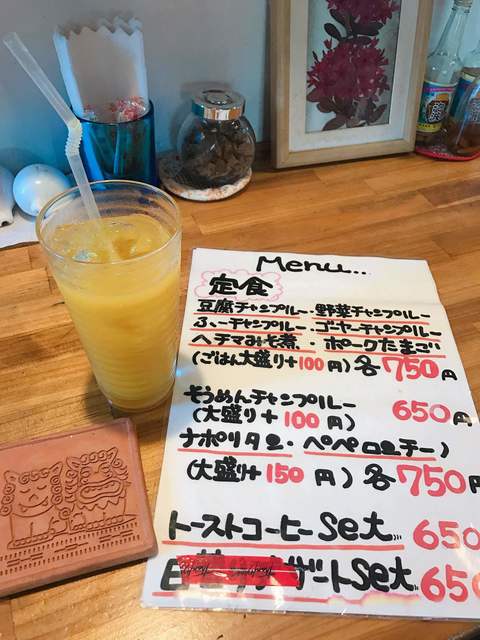 Menu...
定食
豆腐チャンプルー・野菜チャンプルー
ふーチャンプルー・ゴーヤーチャンプルー
ヘチマみそ煮・ポークたまご
(ごはん大盛り+100円)各750円
そうめんチャンプルー 650円
(大盛り+100円)
ナポリタン・ペペロンチーノ
(大盛り+150円)各750円
トーストコーヒーset 650
ザートset 650